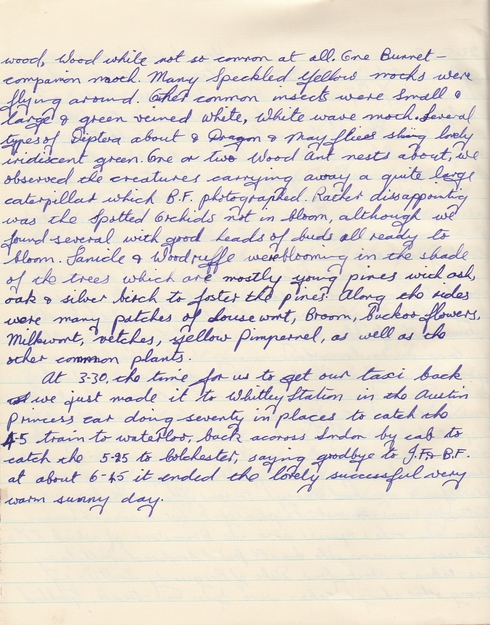 wood, Wood white not so common at all. One Burnet-
companion moch. Many Speckled Yellow mochs were
flying around. Other common insects were Small &
large & green veined white, White wave moch. Several
types of Diptera about & Dragon & May flies shing lovely
iridiscent green. One or two Wood Ant nests about, we
observed the creatures carrying away a quite large
caterpillar which B.F. photographed. Racher dissappointing
was the Spotted Orchids not in bloom, although we
found several with good heads of buds all ready to
bloom. Sanicle & Woodruffe were blooming in the shade
of the trees which are mostly young pines with ash,
oak & silver birch to foster the pines. Along the rides
were many patches of Lousewort, Broom, Buckor flowers,
Milkwort, vetches, yellow Pimpernel, as well as the
other common plants.
At 3-30. the time for us to get our taxi back
we just made it to Whitley Station in the Austin
Princess car doing seventy in places to catch the
4-5 train to waterloo, back acorss Lndon by cab to
catch the 5-25 to Colchester, saying goodbye to J.F & B.F.
at about 6-45 it ended the lovely successful very
warm sunny day.